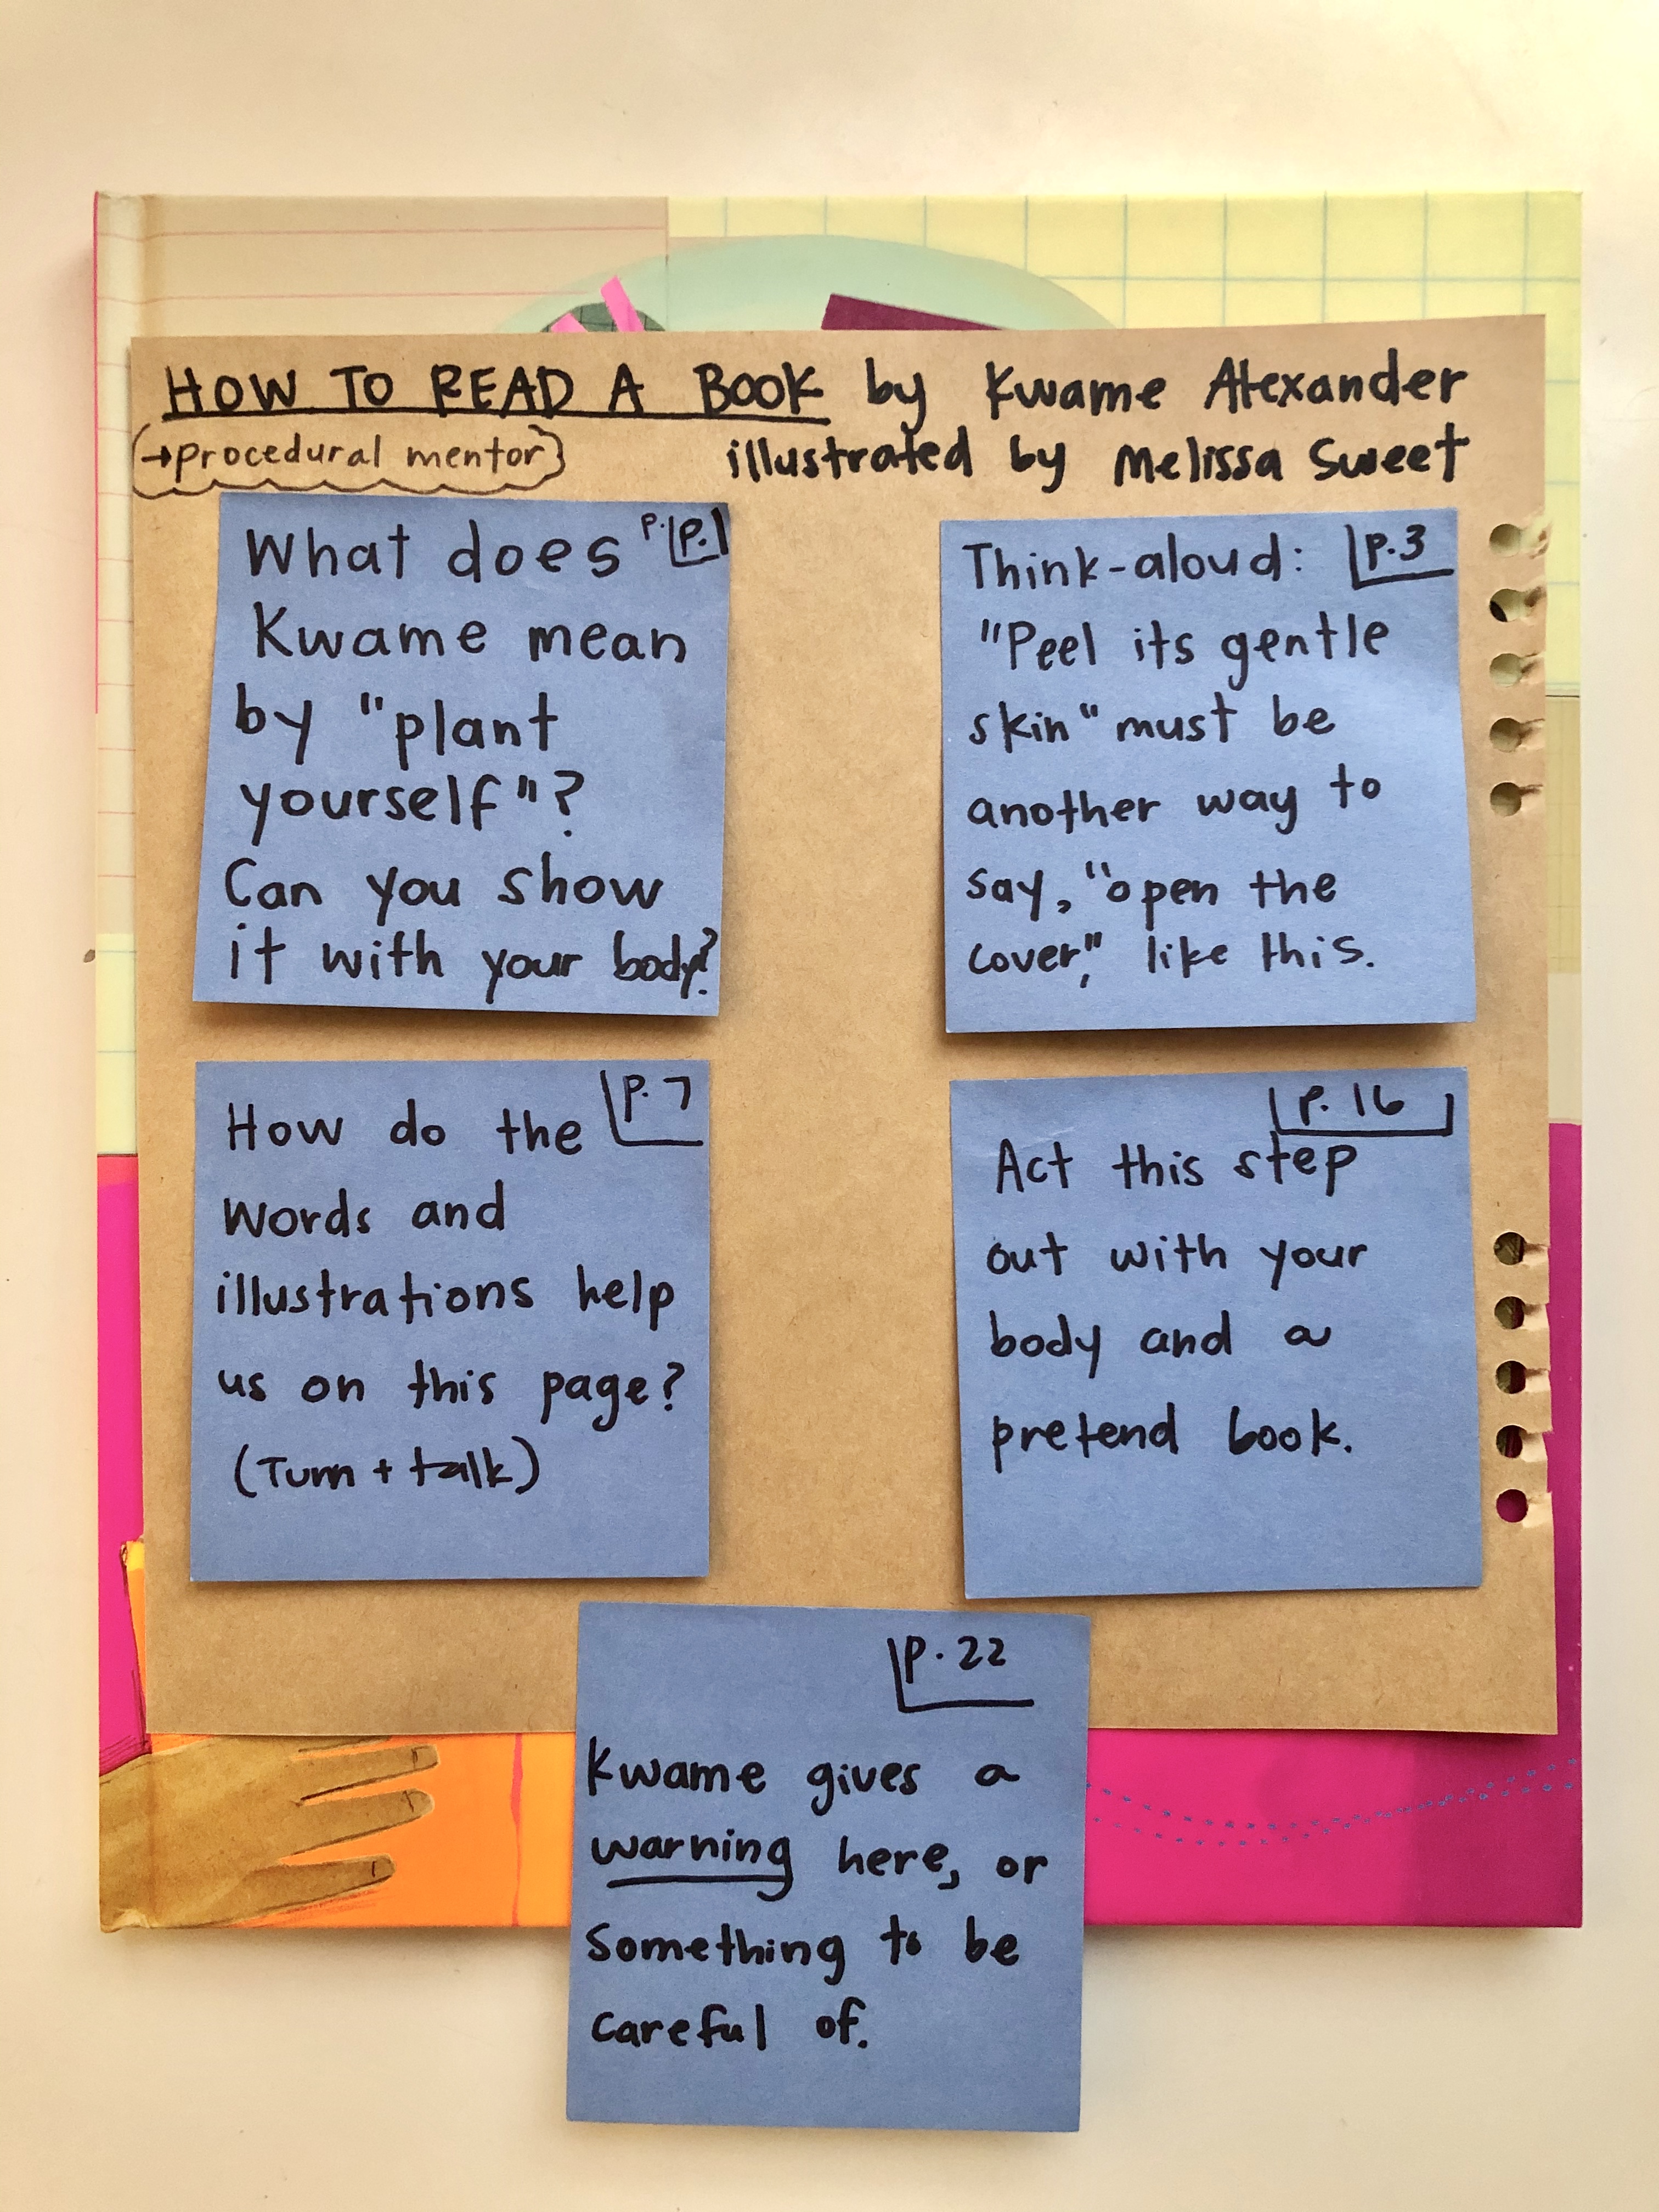 HOW TO READ A BOOK by Kwame Alexander
→procedural mentor
illustrated by Melissa Sweet
What does p. p.1
Kwame mean
by "plant
yourself"?
Can you show
it with your body?
Think-aloud: p.3
"Peel its gentle
skin" must be
another way to
say, "open the
cover," like this.
How do the p.7
words and
illustrations help
us on this page?
(Turn + talk)
p. 16
Act this step
out with your
body and a
pretend book.
p.22
Kwame gives a
warning here, or
something to be
careful of.